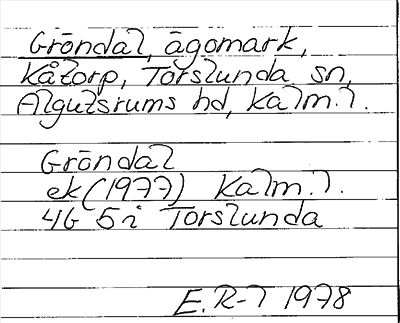 Gröndal, ägomark,
Kåtorp, Torslunda sn,
Algutsrums hd, Kalm. l.
Gröndal
ek (1977) Kalm. l.
4G 5i Torslunda
E. R-T 1978